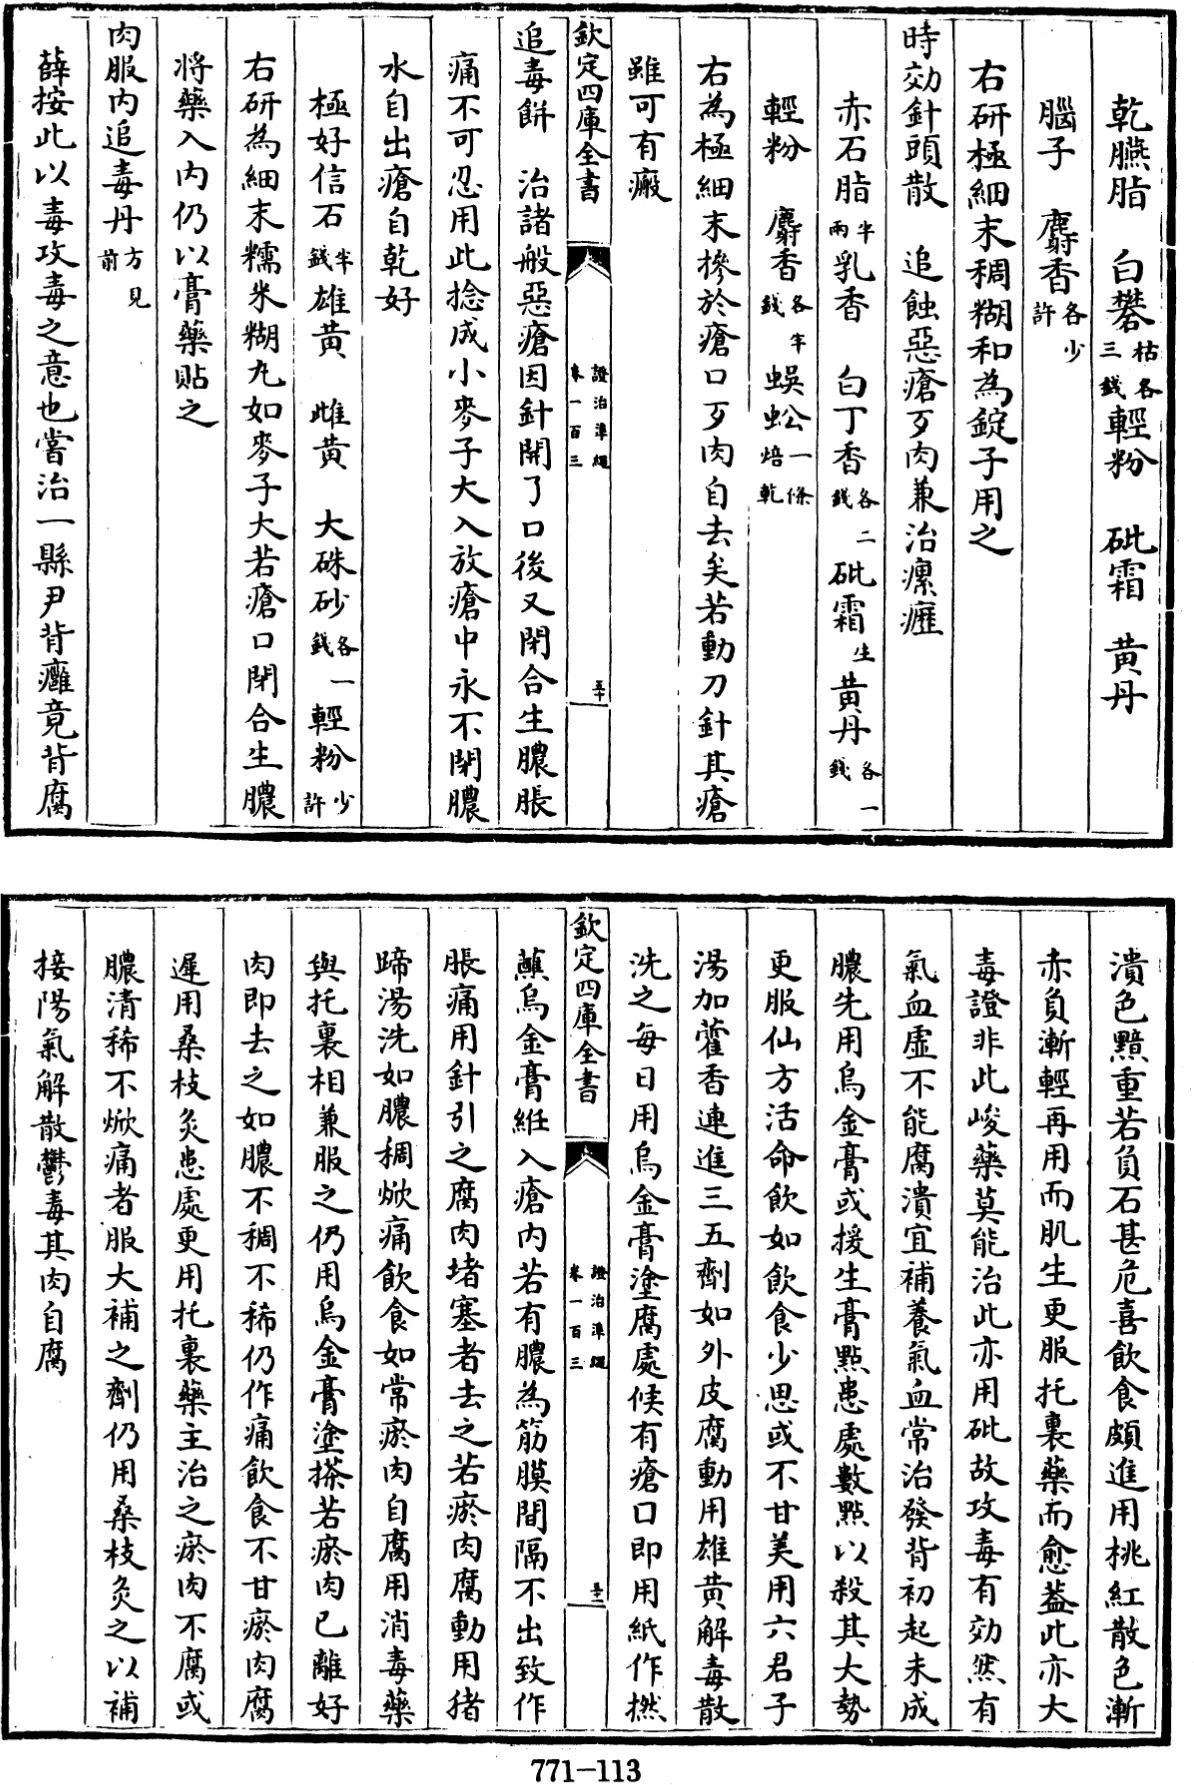 乾臙脂　白礬枯各三錢輕粉　砒霜　黄丹
腦子　麝香各少許
右研極細末稠糊和為錠子用之
時効針頭散　追蝕惡瘡歹肉兼治瘰癧
赤石脂半兩乳香　白丁香各二錢砒霜生黄丹各一錢
輕粉　麝香各半錢蜈蚣一條焙乾
右為極細末摻於瘡口歹肉自去矣若動刀針其瘡
雖可有瘢
欽定四庫全書　證治準繩卷一百三　五十
追毒餅　治諸般惡瘡因針開了口後又閉合生膿脹
痛不可忍用此捻成小麥子大入放瘡中永不閉膿
水自出瘡自乾好
極好信石半錢雄黄　雌黄　大硃砂各一錢輕粉少許
右研為細末糯米糊丸如麥子大若瘡口閉合生膿
將藥入内仍以膏藥貼之
肉服内追毒丹方見前
薛按此以毒攻毒之意也嘗治一縣尹背癰竟背腐
潰色黯重若負石甚危喜飲食頗進用桃紅散色漸
赤負漸輕再用而肌生更服托裏藥而愈葢此亦大
毒證非此峻藥莫能治此亦用砒故攻毒有効然有
氣血虛不能腐潰宜補養氣血常治發背初起未成
膿先用烏金膏或援生膏點患處數點以殺其大勢
更服仙方活命飲如飲食少思或不甘美用六君子
湯加藿香連進三五劑如外皮腐動用雄黄解毒散
洗之每日用烏金膏塗腐處候有瘡口即用紙作撚
欽定四庫全書　證治準繩卷一百三　五十一
蘸烏金膏絍入瘡内若有膿為筋膜間隔不出致作
脹痛用針引之腐肉堵塞者去之若瘀肉腐動用猪
蹄湯洗如膿稠焮痛飲食如常瘀肉自腐用消毒藥
與托裏相兼服之仍用烏金膏塗搽若瘀肉已離好
肉即去之如膿不稠不稀仍作痛飲食不甘瘀肉腐
遲用桑枝灸患處更用托裏藥主治之瘀肉不腐或
膿清稀不焮痛者服大補之劑仍用桑枝灸之以補
接陽氣解散鬱毒其肉自腐
771-113